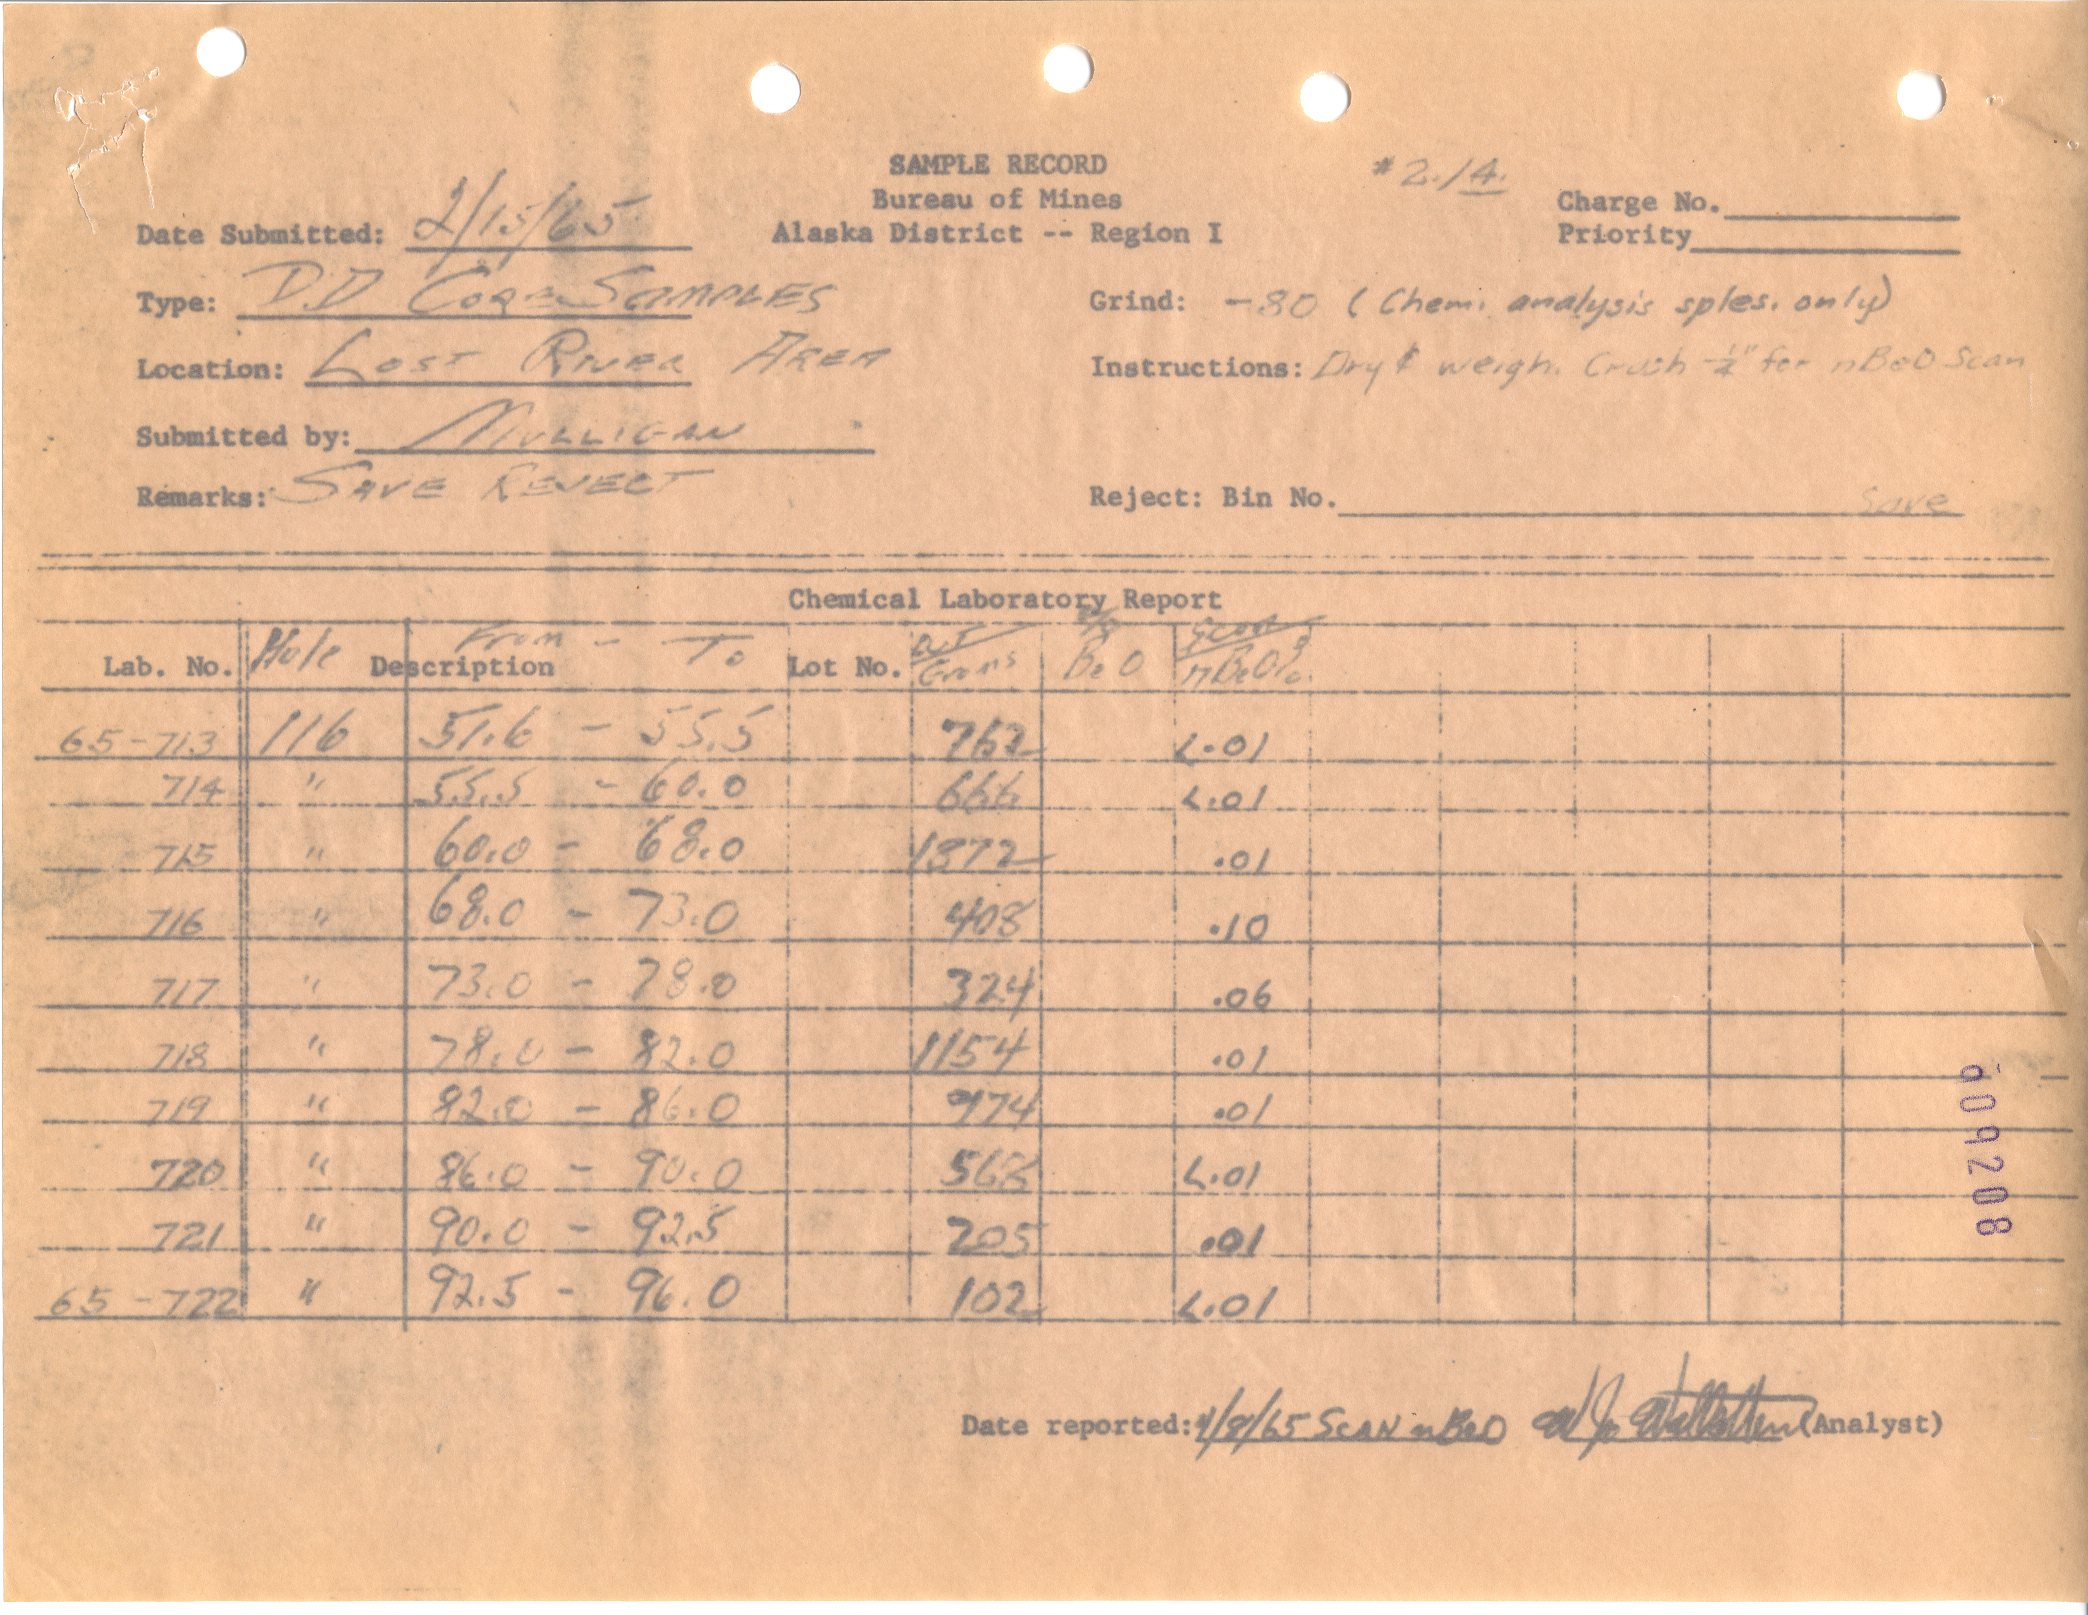 SAMPLE RECORD
Bureau of Mines
Alaska District -- Region I
# 2.14.
Charge No.
Priority
Date Submitted: 2/15/65
Type: D.D CORE SAMPLES
Location: LOST RIVER AREA
Submitted by: MULLIGAN
Remarks: SAVE REJECT
Grind: -80 (Chem. analysis sples. only)
Instructions: Dry & weigh. Crush -¼" for nBeO Scan
Reject: Bin No. Save
Chemical Laboratory Report
Lab. No. Hole Description From - To Lot No. Wt Grams % BeO Scan nBeO%
65-713 116 51.6 - 55.5 762 <.01
714 " 55.5 - 60.0 666 <.01
715 " 60.0 - 68.0 1372 .01
716 " 68.0 - 73.0 408 .10
717 " 73.0 - 78.0 324 .06
718 " 78.0 - 82.0 1154 .01
719 " 82.0 - 86.0 974 .01
720 " 86.0 - 90.0 568 <.01
721 " 90.0 - 92.5 205 .01
65-722 " 92.5 - 96.0 102 <.01
Date reported: 4/8/65 SCAN nBeO (Analyst)
009208